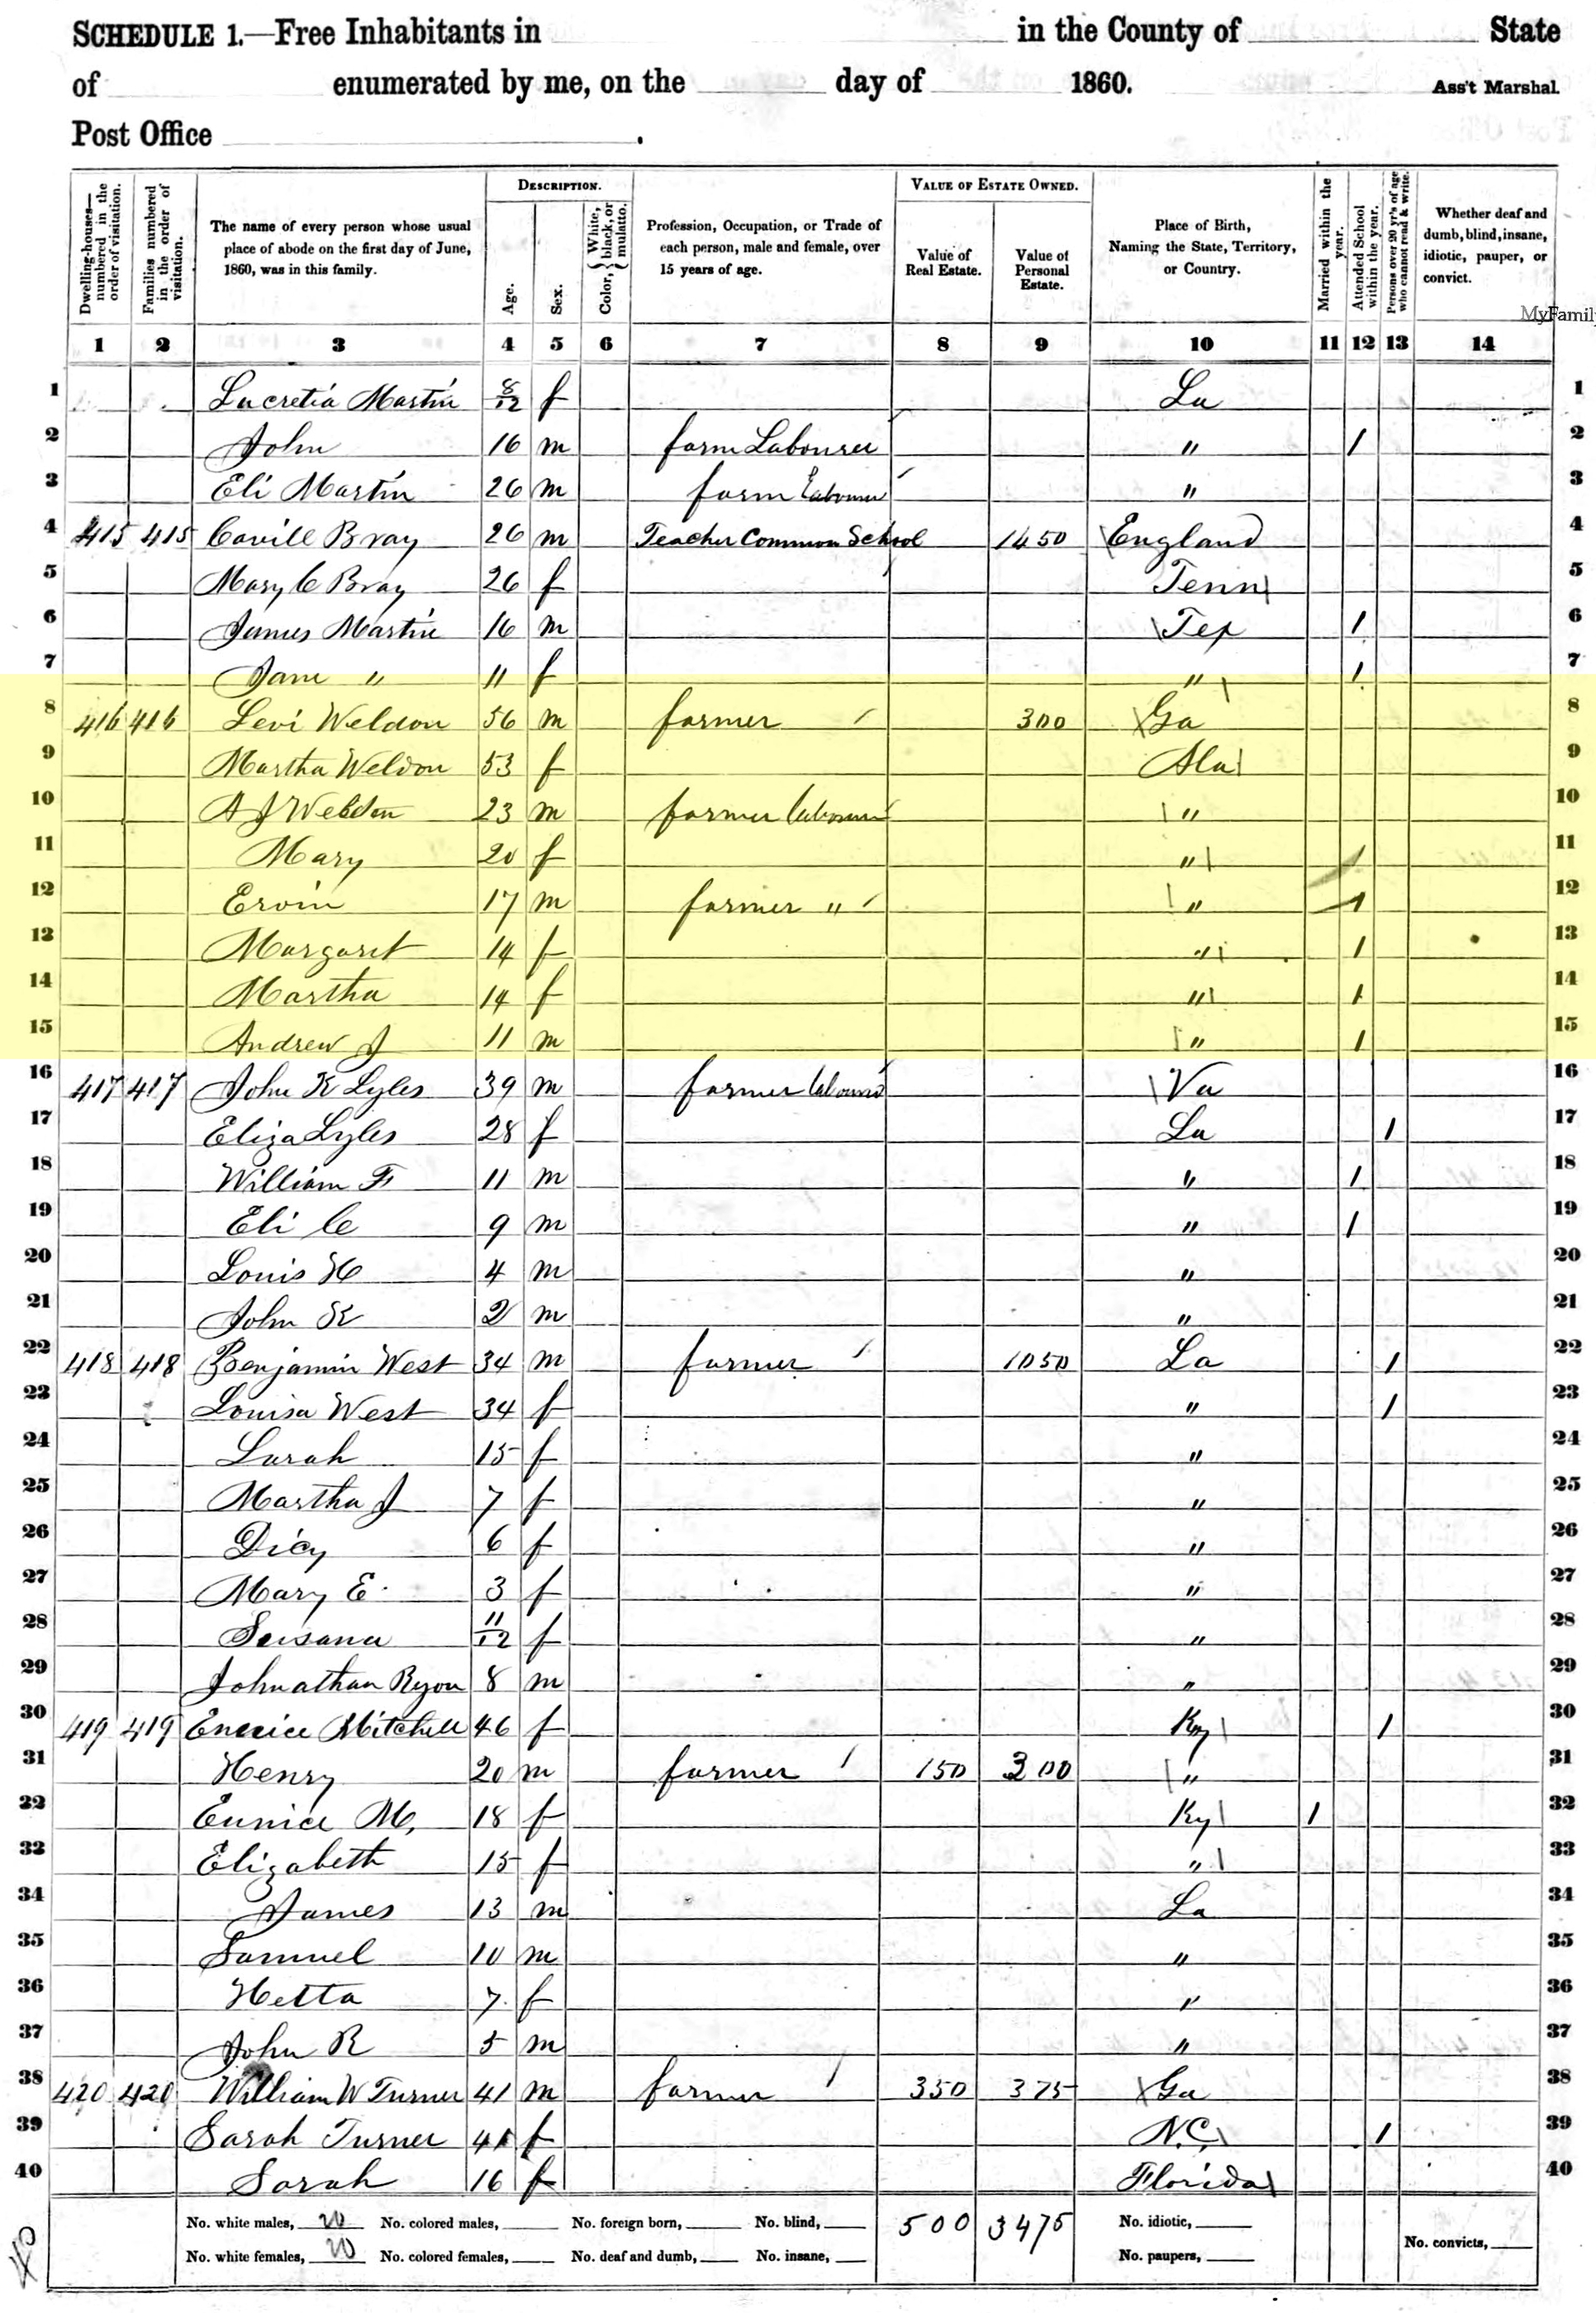 SCHEDULE 1.—Free Inhabitants in in the County of State
of enumerated by me, on the day of 1860. Ass't Marshal.
Post Office .
Dwelling-houses—numbered in the order of visitation.
Families numbered in the order of visitation.
The name of every person whose usual place of abode on the first day of June, 1860, was in this family.
DESCRIPTION.
Age.
Sex.
Color, { White, black, or mulatto.
Profession, Occupation, or Trade of each person, male and female, over 15 years of age.
VALUE OF ESTATE OWNED.
Value of Real Estate.
Value of Personal Estate.
Place of Birth, Naming the State, Territory, or Country.
Married within the year.
Attended School within the year.
Persons over 20 yr's of age who cannot read & write.
Whether deaf and dumb, blind, insane, idiotic, pauper, or convict.
MyFamil
1 2 3 4 5 6 7 8 9 10 11 12 13 14
1 Lucretia Martin 8/12 f La 1
2 John 16 m farm Labourer " / 2
3 Eli Martin 26 m farm Labourer " 3
4 415 415 Cavill Bray 26 m Teacher Common School 1450 England 4
5 Mary C Bray 26 f Tenn 5
6 James Martin 16 m Tex / 6
7 Jane " 11 f " / 7
8 416 416 Levi Weldon 56 m farmer 300 Ga 8
9 Martha Weldon 53 f Ala 9
10 A J Weldon 23 m farmer labourer " 10
11 Mary 20 f " / 11
12 Ervin 17 m farmer " " / 12
13 Margaret 14 f " / 13
14 Martha 14 f " / 14
15 Andrew J 11 m " / 15
16 417 417 John K Lyles 39 m farmer labourer Va 16
17 Eliza Lyles 28 f La / 17
18 William F 11 m " / 18
19 Eli C 9 m " / 19
20 Louis H 4 m " 20
21 John K 2 m " 21
22 418 418 Benjamin West 34 m farmer 1050 La / 22
23 Louisa West 34 f " / 23
24 Sarah 15 f " 24
25 Martha J 7 f " 25
26 Dicy 6 f " 26
27 Mary E 3 f " 27
28 Susana 11/12 f " 28
29 Johnathan Ryon 8 m " 29
30 419 419 Eunice Mitchell 46 f Ky / 30
31 Henry 20 m farmer 150 300 " 31
32 Eunice M, 18 f Ky / 32
33 Elizabeth 15 f " 33
34 James 13 m La 34
35 Samuel 10 m " 35
36 Hetta 7 f " 36
37 John R 5 m " 37
38 420 420 William W Turner 41 m farmer 350 375 Ga 38
39 Sarah Turner 41 f N.C. / 39
40 Sarah 16 f Florida 40
No. white males, 20 No. colored males, No. foreign born, No. blind, 500 3475 No. idiotic, No. convicts,
No. white females, 20 No. colored females, No. deaf and dumb, No. insane, No. paupers,